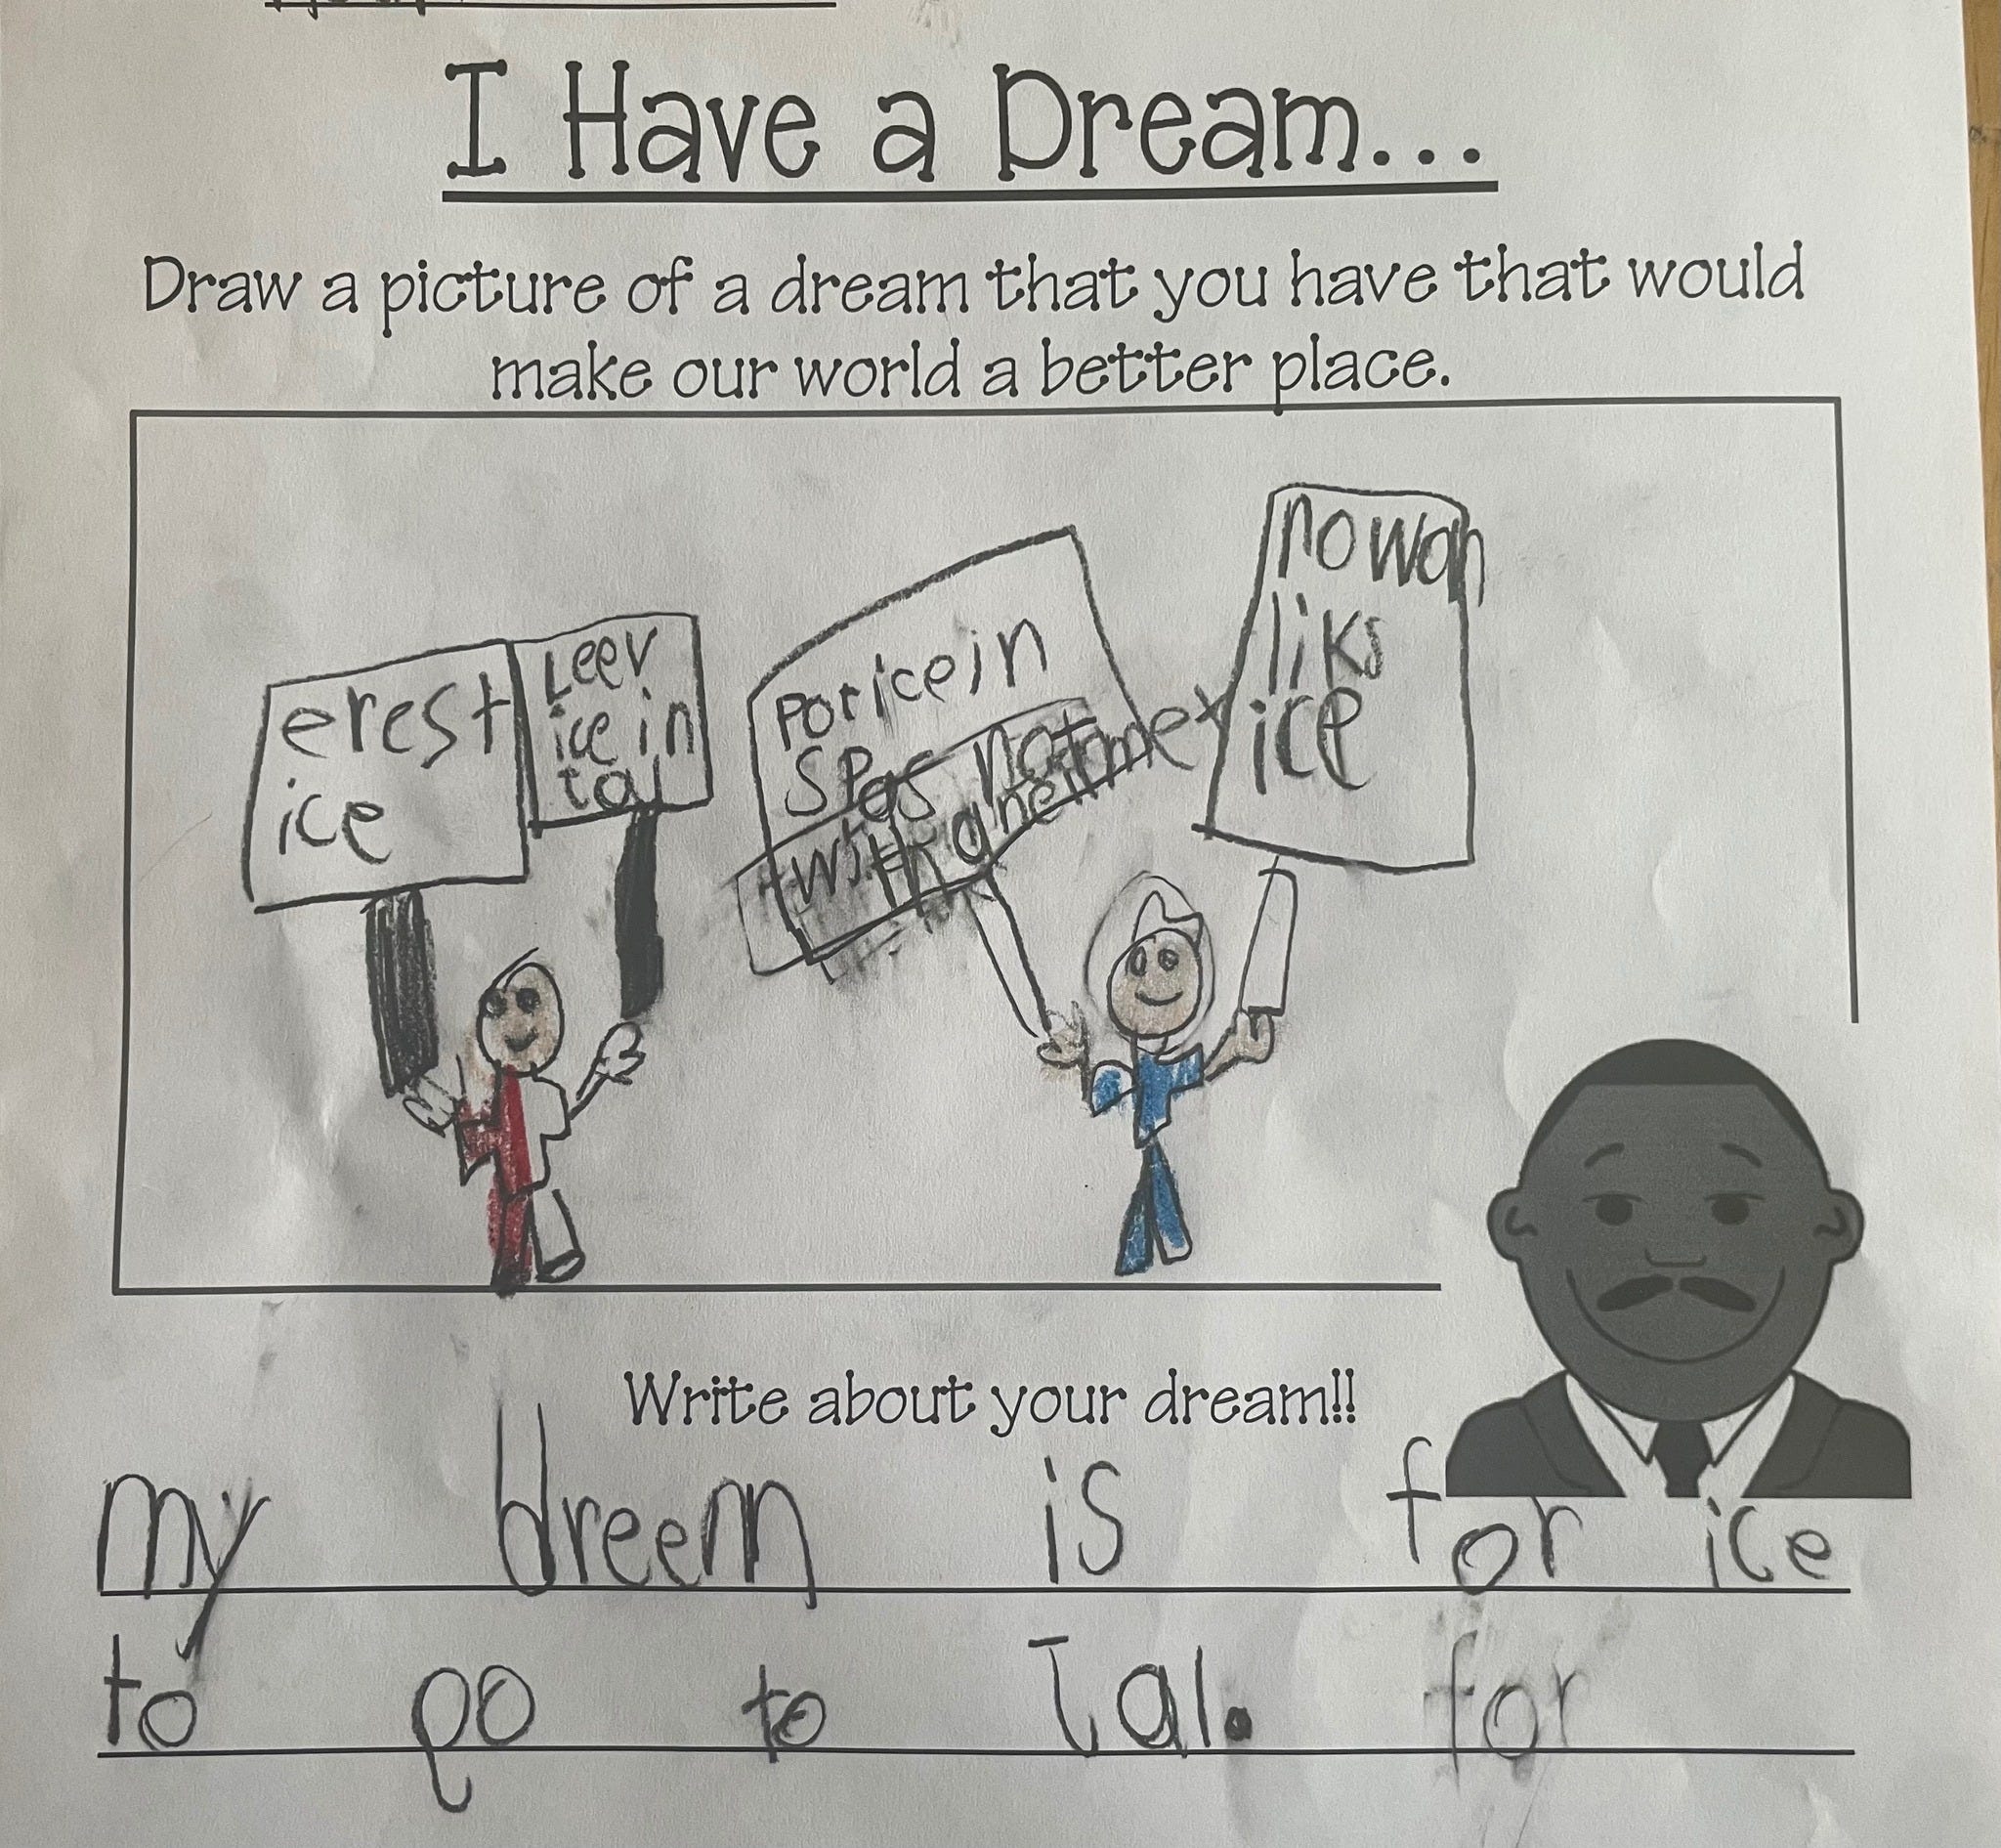 I Have a Dream...
Draw a picture of a dream that you have that would
make our world a better place.
erest
ice
Leev
ice in
tal
Poricein
SPas not
with a helmet
nowan
liks
ice
Write about your dream!!
my dreem is for ice
to go to Jal. for